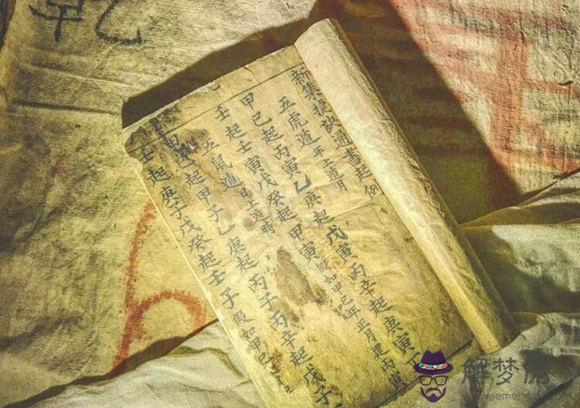 新集捷訣通書起例
五虎遁年上遁月
甲己起丙寅乙庚起戊寅丙辛起庚寅丁
壬起壬寅戊癸起甲寅假如甲己年正月是丙寅
五鼠遁日上遁時
起甲子乙庚起丙子丙辛起戊子
壬起庚子戊癸起壬子假如甲己
解梦